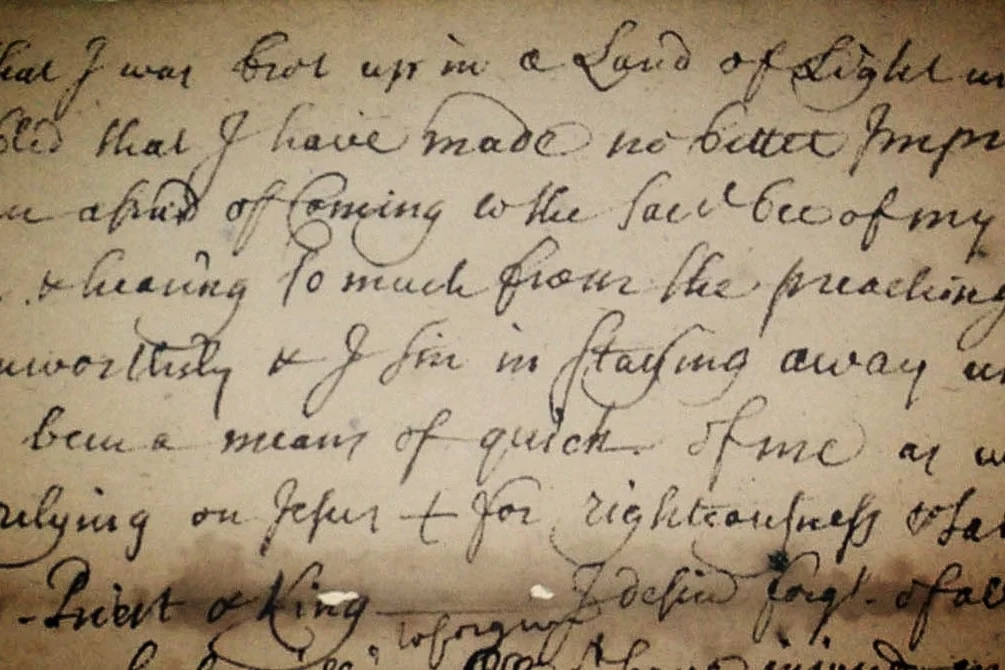 hat I was brot up in a Land of Light
bled that I have made no better Impr
afraid of Coming to the Sac't bec of my
& hearing so much from the preaching
nworthily & I sin in Staying away
been a means of quick. of me as w
relying on Jesus + for righteousness
-Priest & King — I desire forg't. of al
to forgive